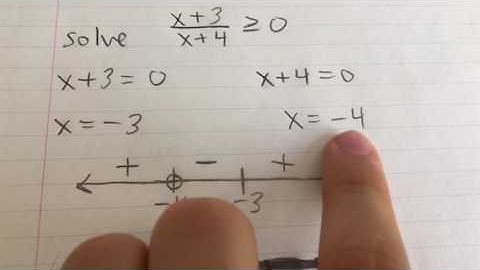 solve x+3/x+4 ≥ 0
x+3=0 x+4=0
x=-3 x=-4
+ - +
-3